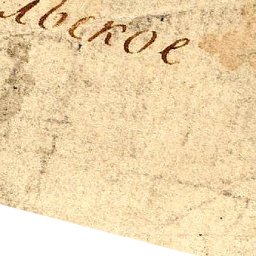 льское